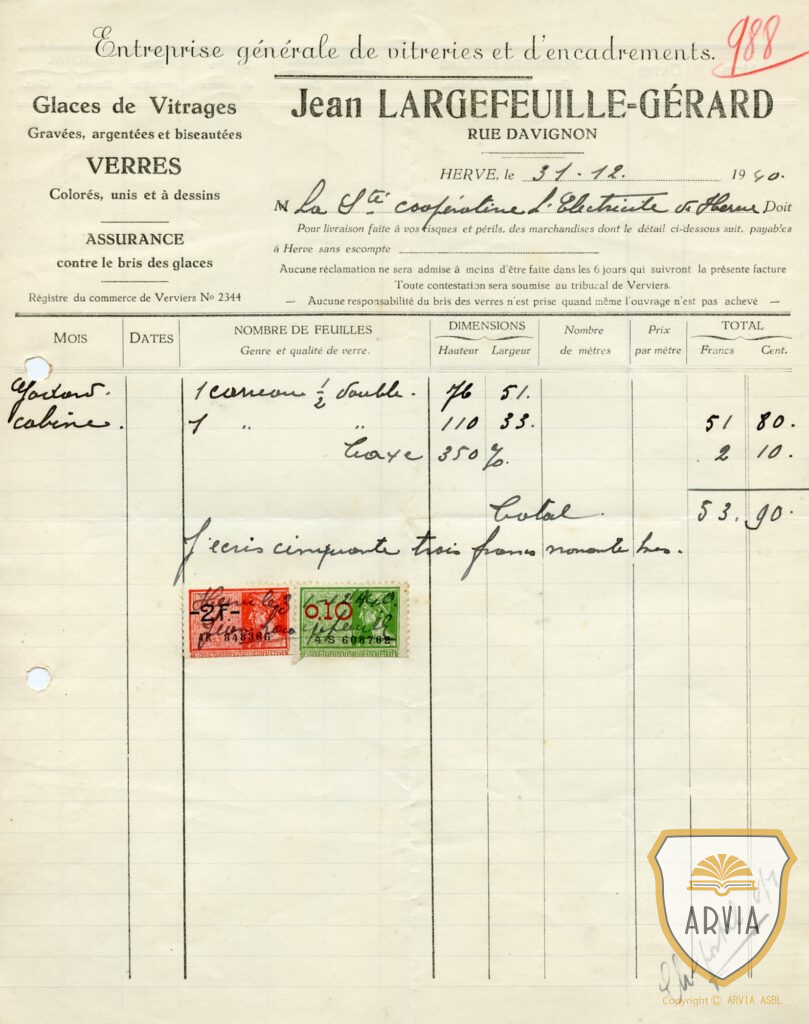 Entreprise générale de vitreries et d'encadrements.
988
Glaces de Vitrages
Gravées, argentées et biseautées
VERRES
Colorés, unis et à dessins
ASSURANCE
contre le bris des glaces
Régistre du commerce de Verviers No 2344
Jean LARGEFEUILLE-GÉRARD
RUE DAVIGNON
HERVE, le 31-12. 1940.
M La Sté coopérative L'Electricité de Herve Doit
Pour livraison faite à vos risques et périls, des marchandises dont le détail ci-dessous suit, payables
à Herve sans escompte
Aucune réclamation ne sera admise à moins d'être faite dans les 6 jours qui suivront la présente facture
Toute contestation sera soumise au tribunal de Verviers.
— Aucune responsabilité du bris des verres n'est prise quand même l'ouvrage n'est pas achevé —
MOIS DATES NOMBRE DE FEUILLES DIMENSIONS Nombre Prix TOTAL
Genre et qualité de verre. Hauteur Largeur de mètres par mètre Francs Cent.
1 carreau ½ double. 76 51.
cabine. 1 " " 110 33. 51 80.
Taxe 350 %. 2 10.
Total. 53. 90.
J'écris cinquante trois francs nonante
-2F- 0.10
AK 848366 4-S 608762
ARVIA
Copyright © ARVIA ASBL